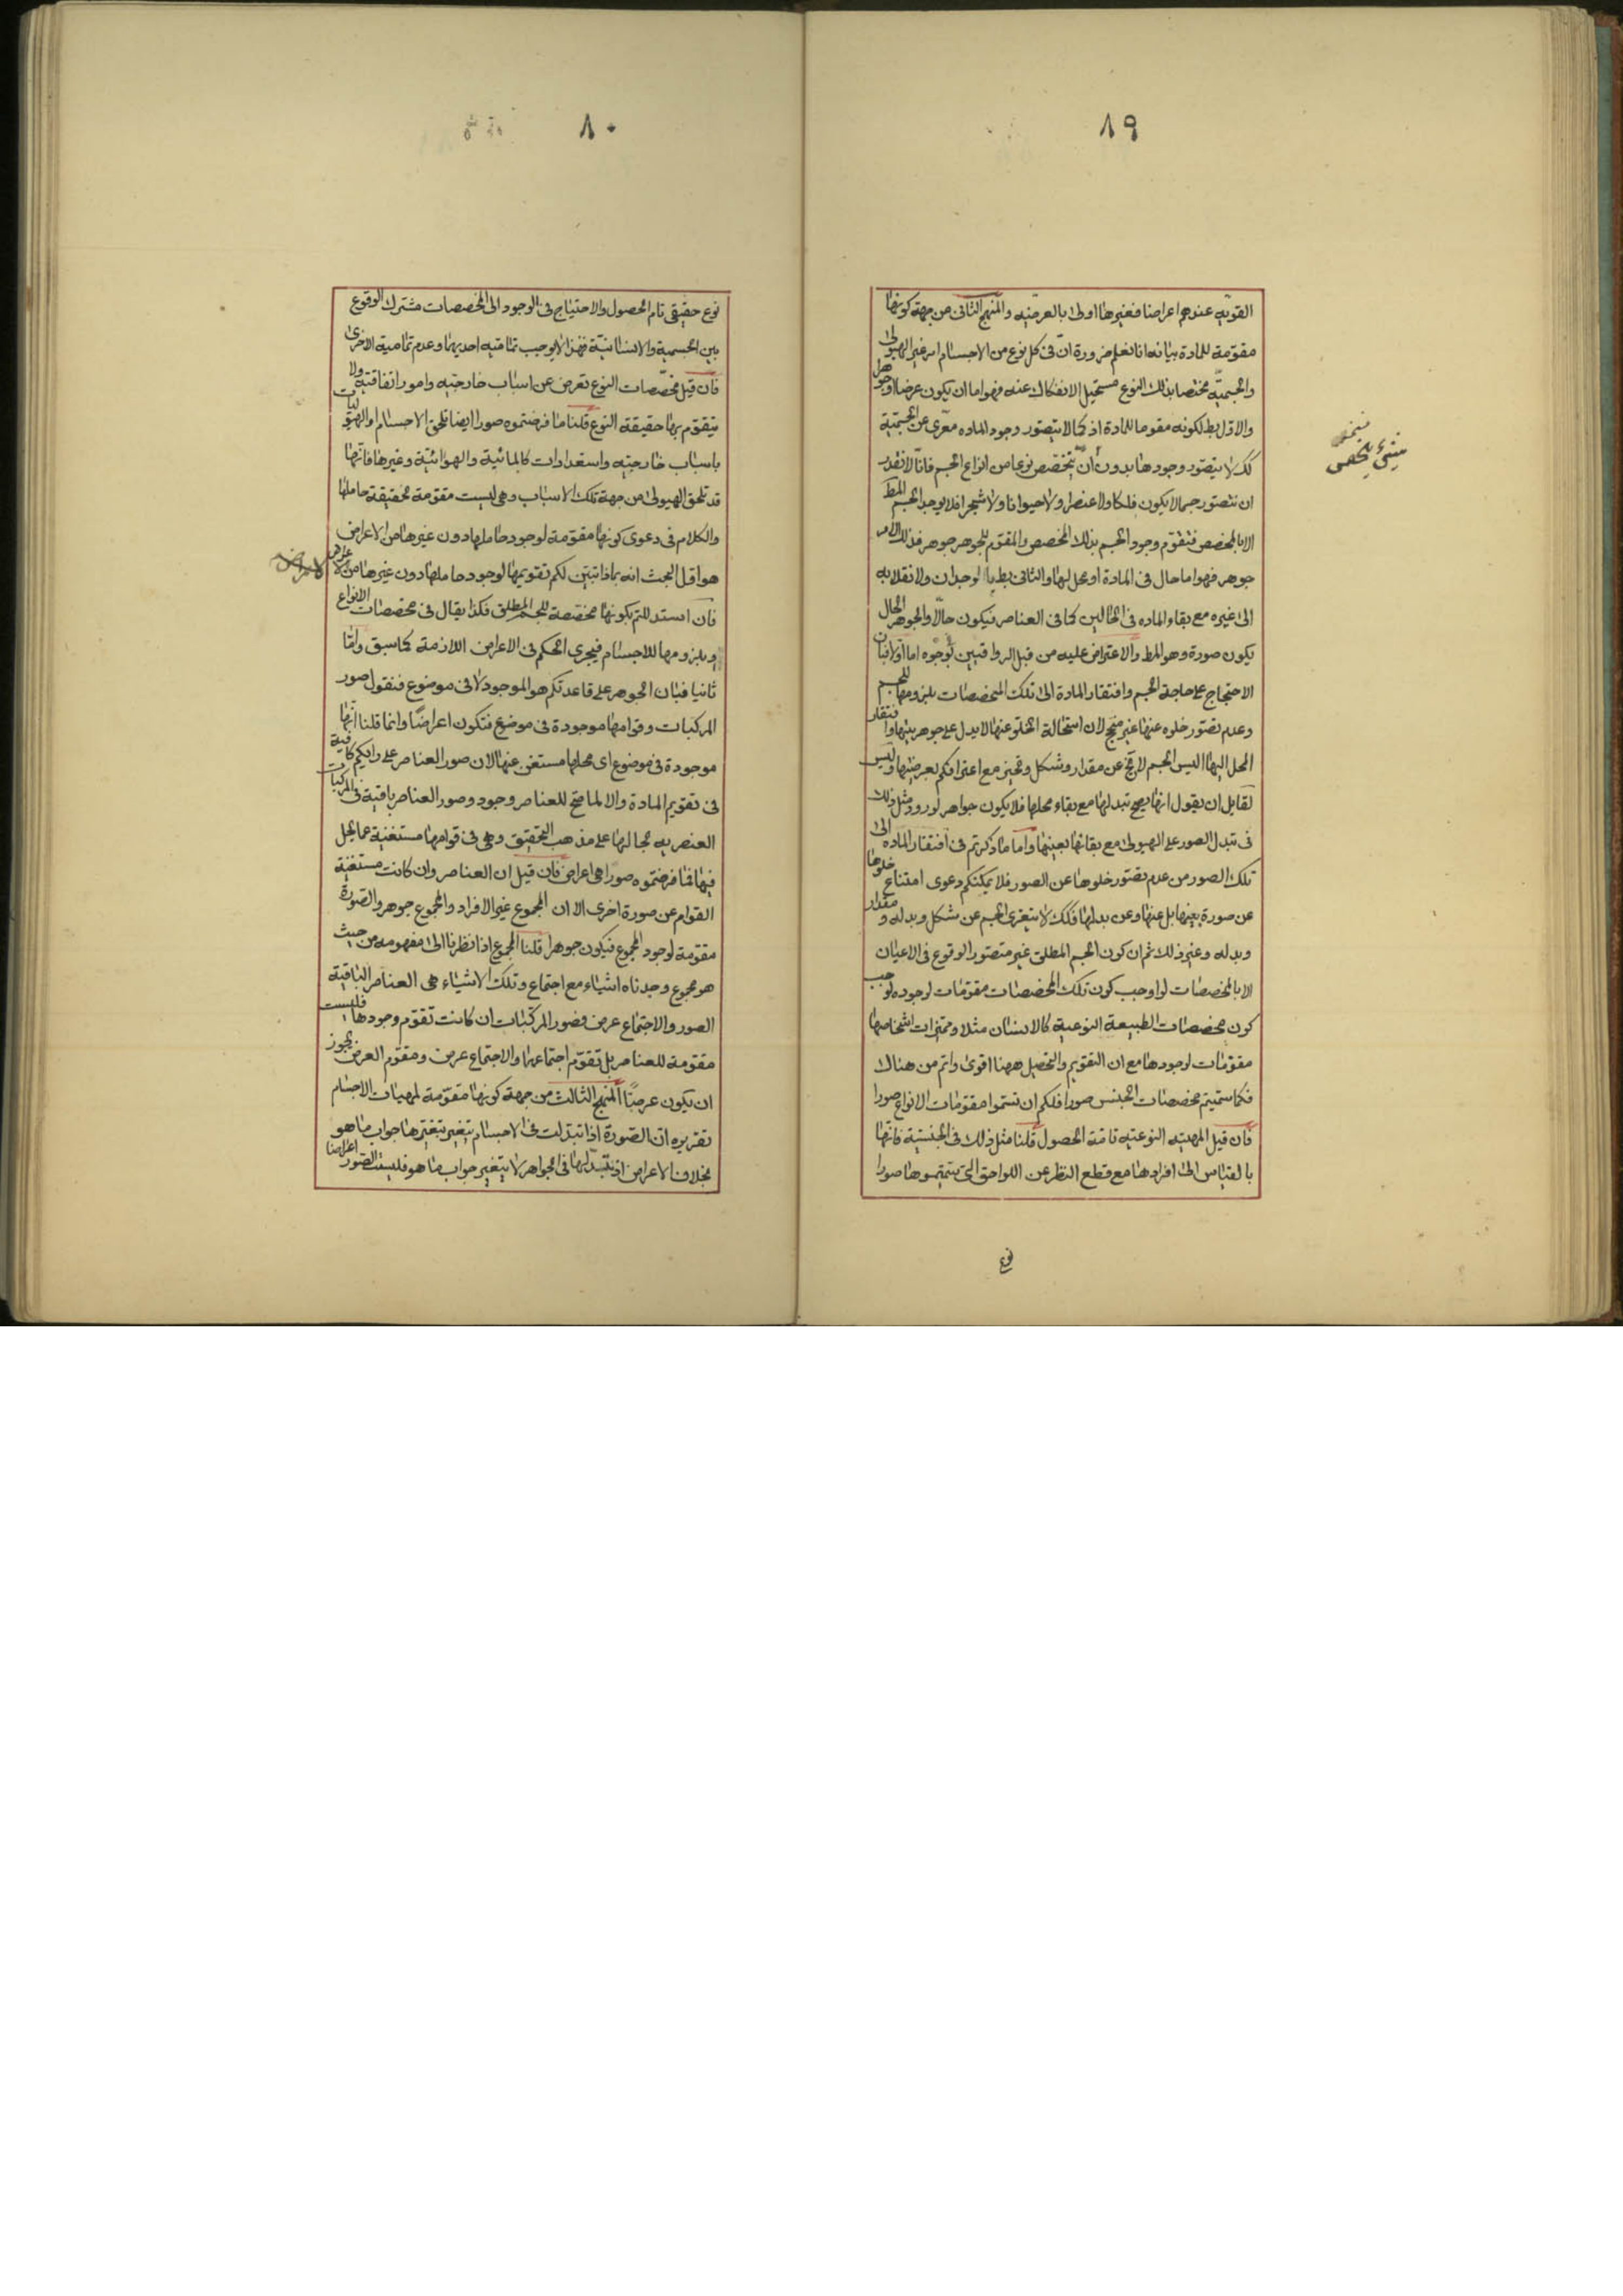 ٨٩
القويه عندهم اعراضا فغيرها اولى بالعرضيه والمنهج الثانى من جهة كونها
مقومة للمادة بيانه انا نعلم ضرورة ان فى كل نوع من الاجسام امر غير الهيولى
والجسميه مختصا بذلك النوع مستحيل الانفكاك عنه فهو اما ان يكون عرضا او جوهرا
والاول بط لكونه مقوما للمادة اذ كما لا يتصور وجود الماده معرى عن الجسمية
كك لا يتصور وجودها بدون ان يتخصص نوعا من انواع الجسم فانا لا نقدر
ان نتصور جسما لا يكون فلكا ولا عنصرا ولا حيوانا ولا شجرا فلا يوجد الجسم المط
الا بالمخصص فتقوم وجود الجسم بذلك المخصص والمقوم للجوهر جوهر فذلك الامر
جوهر فهو اما حال فى المادة او محل لها والثانى بط بالوجدان ولانقلابه
الى غيره مع بقاء الماده فى الحالين كما فى العناصر فيكون حالا والجوهر الحال
يكون صورة وهو المط والاعتراض عليه من قبل الرواقيين بوجوه اما اولا فبان
الاحتجاج على حاجة الجسم وافتقار المادة الى تلك المخصصات بلزومها للجسم
وعدم تصور خلوه عنها غير منجح لان استحالة الخلو عنها لا يدل على جوهريتها وافتقار
المحل اليها اليس الجسم لا يخ عن مقدار وشكل وتحيز مع اعترافكم بعرضيتها وليس
لقايل ان يقول انها يصح تبدلها مع بقاء محلها فلا يكون جواهر لورود مثل ذلك
فى تبدل الصور على الهيولى مع بقائها بعينها واما ما ذكرتم فى افتقار الماده الى
تلك الصور من عدم تصور خلوها عن الصور فلا يمكنكم دعوى امتناع خلوها
عن صورة بعينها بل عنها وعن بدلها فكك لا يتعرى الجسم عن شكل وبدله و مقدار
وبدله وغير ذلك ثم ان كون الجسم المطلق غير متصور الوقوع فى الاعيان
الا بالمخصصات لو اوجب كون تلك المخصصات مقومات لوجوده لوجب
كون مخصصات الطبيعة النوعية كالانسان مثلا ومميزات اشخاصها
مقومات لوجودها مع ان التقويم والتحصيل ههنا اقوى واتم من هناك
فكما سميتم مخصصات الجنس صورا فلكم ان تسموا مقومات الانواع صورا
فان قيل المهيه النوعيه تامة الحصول قلنا مثل ذلك فى الجنسية فانها
بالقياس الى افرادها مع قطع النظر عن اللواحق التى سميتموها صورا
نوع
٨٠
نوع حقيقى تام الحصول والاحتياج فى الوجود الى المخصصات مشترك الوقوع
بين الجسمية والانسانية فهذا لا يوجب تمامية احديهما وعدم تمامية الاخرى
فان قيل مخصصات النوع تعرض عن اسباب خارجيه وامور اتفاقية ولا
يتقوم بها حقيقة النوع قلنا ما فرضتموه صورا ايضا تلحق الاجسام والهيوليات
باسباب خارجيه واستعدادات كالمائية والهوائية وغيرها فانها
قد تلحق الهيولى من جهة تلك الاسباب وهى ليست مقومة لحقيقة حاملها
والكلام فى دعوى كونها مقومة لوجود حاملها دون غيرها من الاعراض
هو اول البحث انه بماذا تبين لكم تقويمها لوجود حاملها دون غيرها من الاعراض
فان استدللتم بكونها مخصصة للجسم المطلق فكذا يقال فى مخصصات الانواع
وبلزومها للاجسام فيجرى الحكم فى الاعراض اللازمة كما سبق واما
ثانيا فبان الجوهر على قاعدتكم هو الموجود لا فى موضوع فنقول صور
المركبات وقوامها موجودة فى موضوع فتكون اعراضا وانما قلنا انها
موجودة فى موضوع اى محلها مستغن عنها لان صور العناصر على رايكم كافية
فى تقويم المادة والا لما صح للعناصر وجود وصور العناصر باقية فى المركبات
العنصريه بحالها على مذهب التحقيق وهى فى قوامها مستغنية عما يحل
فيها فما فرضتموه صورا هى اعراض فان قيل ان العناصر وان كانت مستغنية
القوام عن صورة اخرى الا ان المجموع غير الافراد والمجموع جوهر والصورة
مقومة لوجود المجموع فيكون جوهرا قلنا المجموع اذا نظرنا الى مفهومه من حيث
هو مجموع وجدناه اشياء مع اجتماع وتلك الاشياء هى العناصر الباقية
الصور والاجتماع عرض فصور المركبات ان كانت تقوم وجودها فليست
مقومة للعناصر بل تقوم اجتماعها والاجتماع عرض ومقوم العرض يجوز
ان يكون عرضا المنهج الثالث من جهة كونها مقومة لمهيات الاجسام
تقريره ان الصورة اذا تبدلت فى الاجسام يتغير بتغيرها جواب ما هو
بخلاف الاعراض اذ بتبدلها فى الجواهر لا يتغير جواب ما هو فليست الصور اعراضا